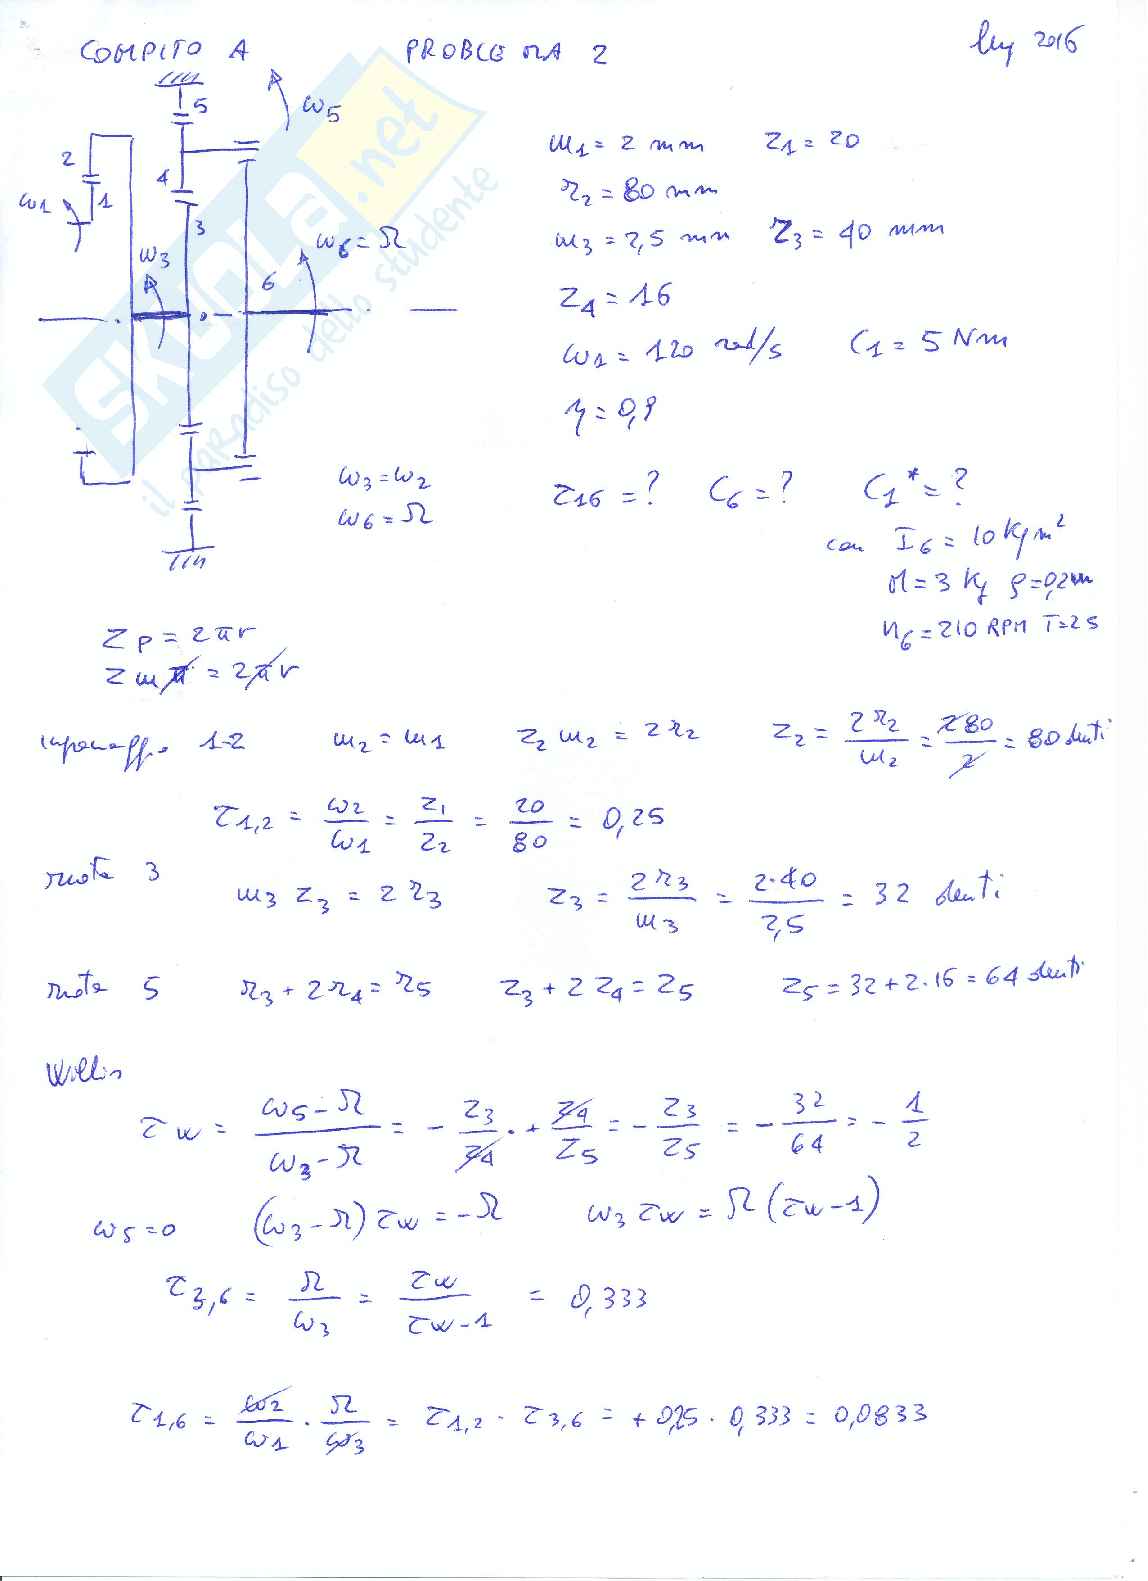 COMPITO A PROBLEMA 2 lug 2016
5
ω5
2
4
ω1
1
3
ω3
ω6 = Ω
6
m1 = 2 mm z1 = 20
r2 = 80 mm
m3 = 2,5 mm r3 = 40 mm
z4 = 16
ω1 = 120 rad/s C1 = 5 Nm
η = 0,9
ω3 = ω2
ω6 = Ω
τ16 = ? C6 = ? C1* = ?
con I6 = 10 kg m²
M = 3 kg ρ = 0,2 m
n6 = 210 RPM T = 2 s
z p = 2πr
z m π = 2πr
ingranaggio 1-2 m2 = m1 z2 m2 = 2 r2 z2 = 2 r2 / m2 = 2 80 / 2 = 80 denti
τ1,2 = ω2 / ω1 = z1 / z2 = 20 / 80 = 0,25
ruota 3 m3 z3 = 2 r3 z3 = 2 r3 / m3 = 2·40 / 2,5 = 32 denti
ruota 5 r3 + 2 r4 = r5 z3 + 2 z4 = z5 z5 = 32 + 2·16 = 64 denti
Willis
τw = ω5 - Ω / ω3 - Ω = - z3 / z4 · + z4 / z5 = - z3 / z5 = - 32 / 64 = - 1 / 2
ω5 = 0 (ω3 - Ω) τw = -Ω ω3 τw = Ω (τw - 1)
τ3,6 = Ω / ω3 = τw / τw - 1 = 0,333
τ1,6 = ω2 / ω1 · Ω / ω3 = τ1,2 · τ3,6 = + 0,25 · 0,333 = 0,0833
SKUOLA.net
il paradiso dello studente